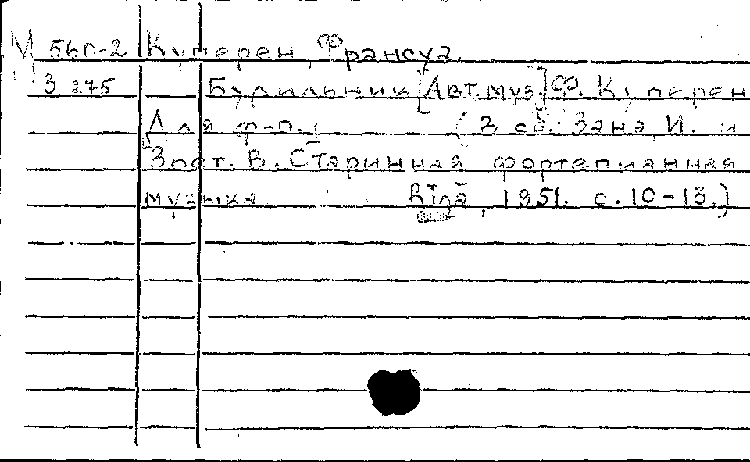 М 56п-2 Куперен, Франсуа.
З 275 Будильник [Авт. муз.] Ф. Куперен
Для ф-п. (В сб. Зана, И. и
Зост. В. Старинная фортепианная
музыка 1951. с. 10-13.)